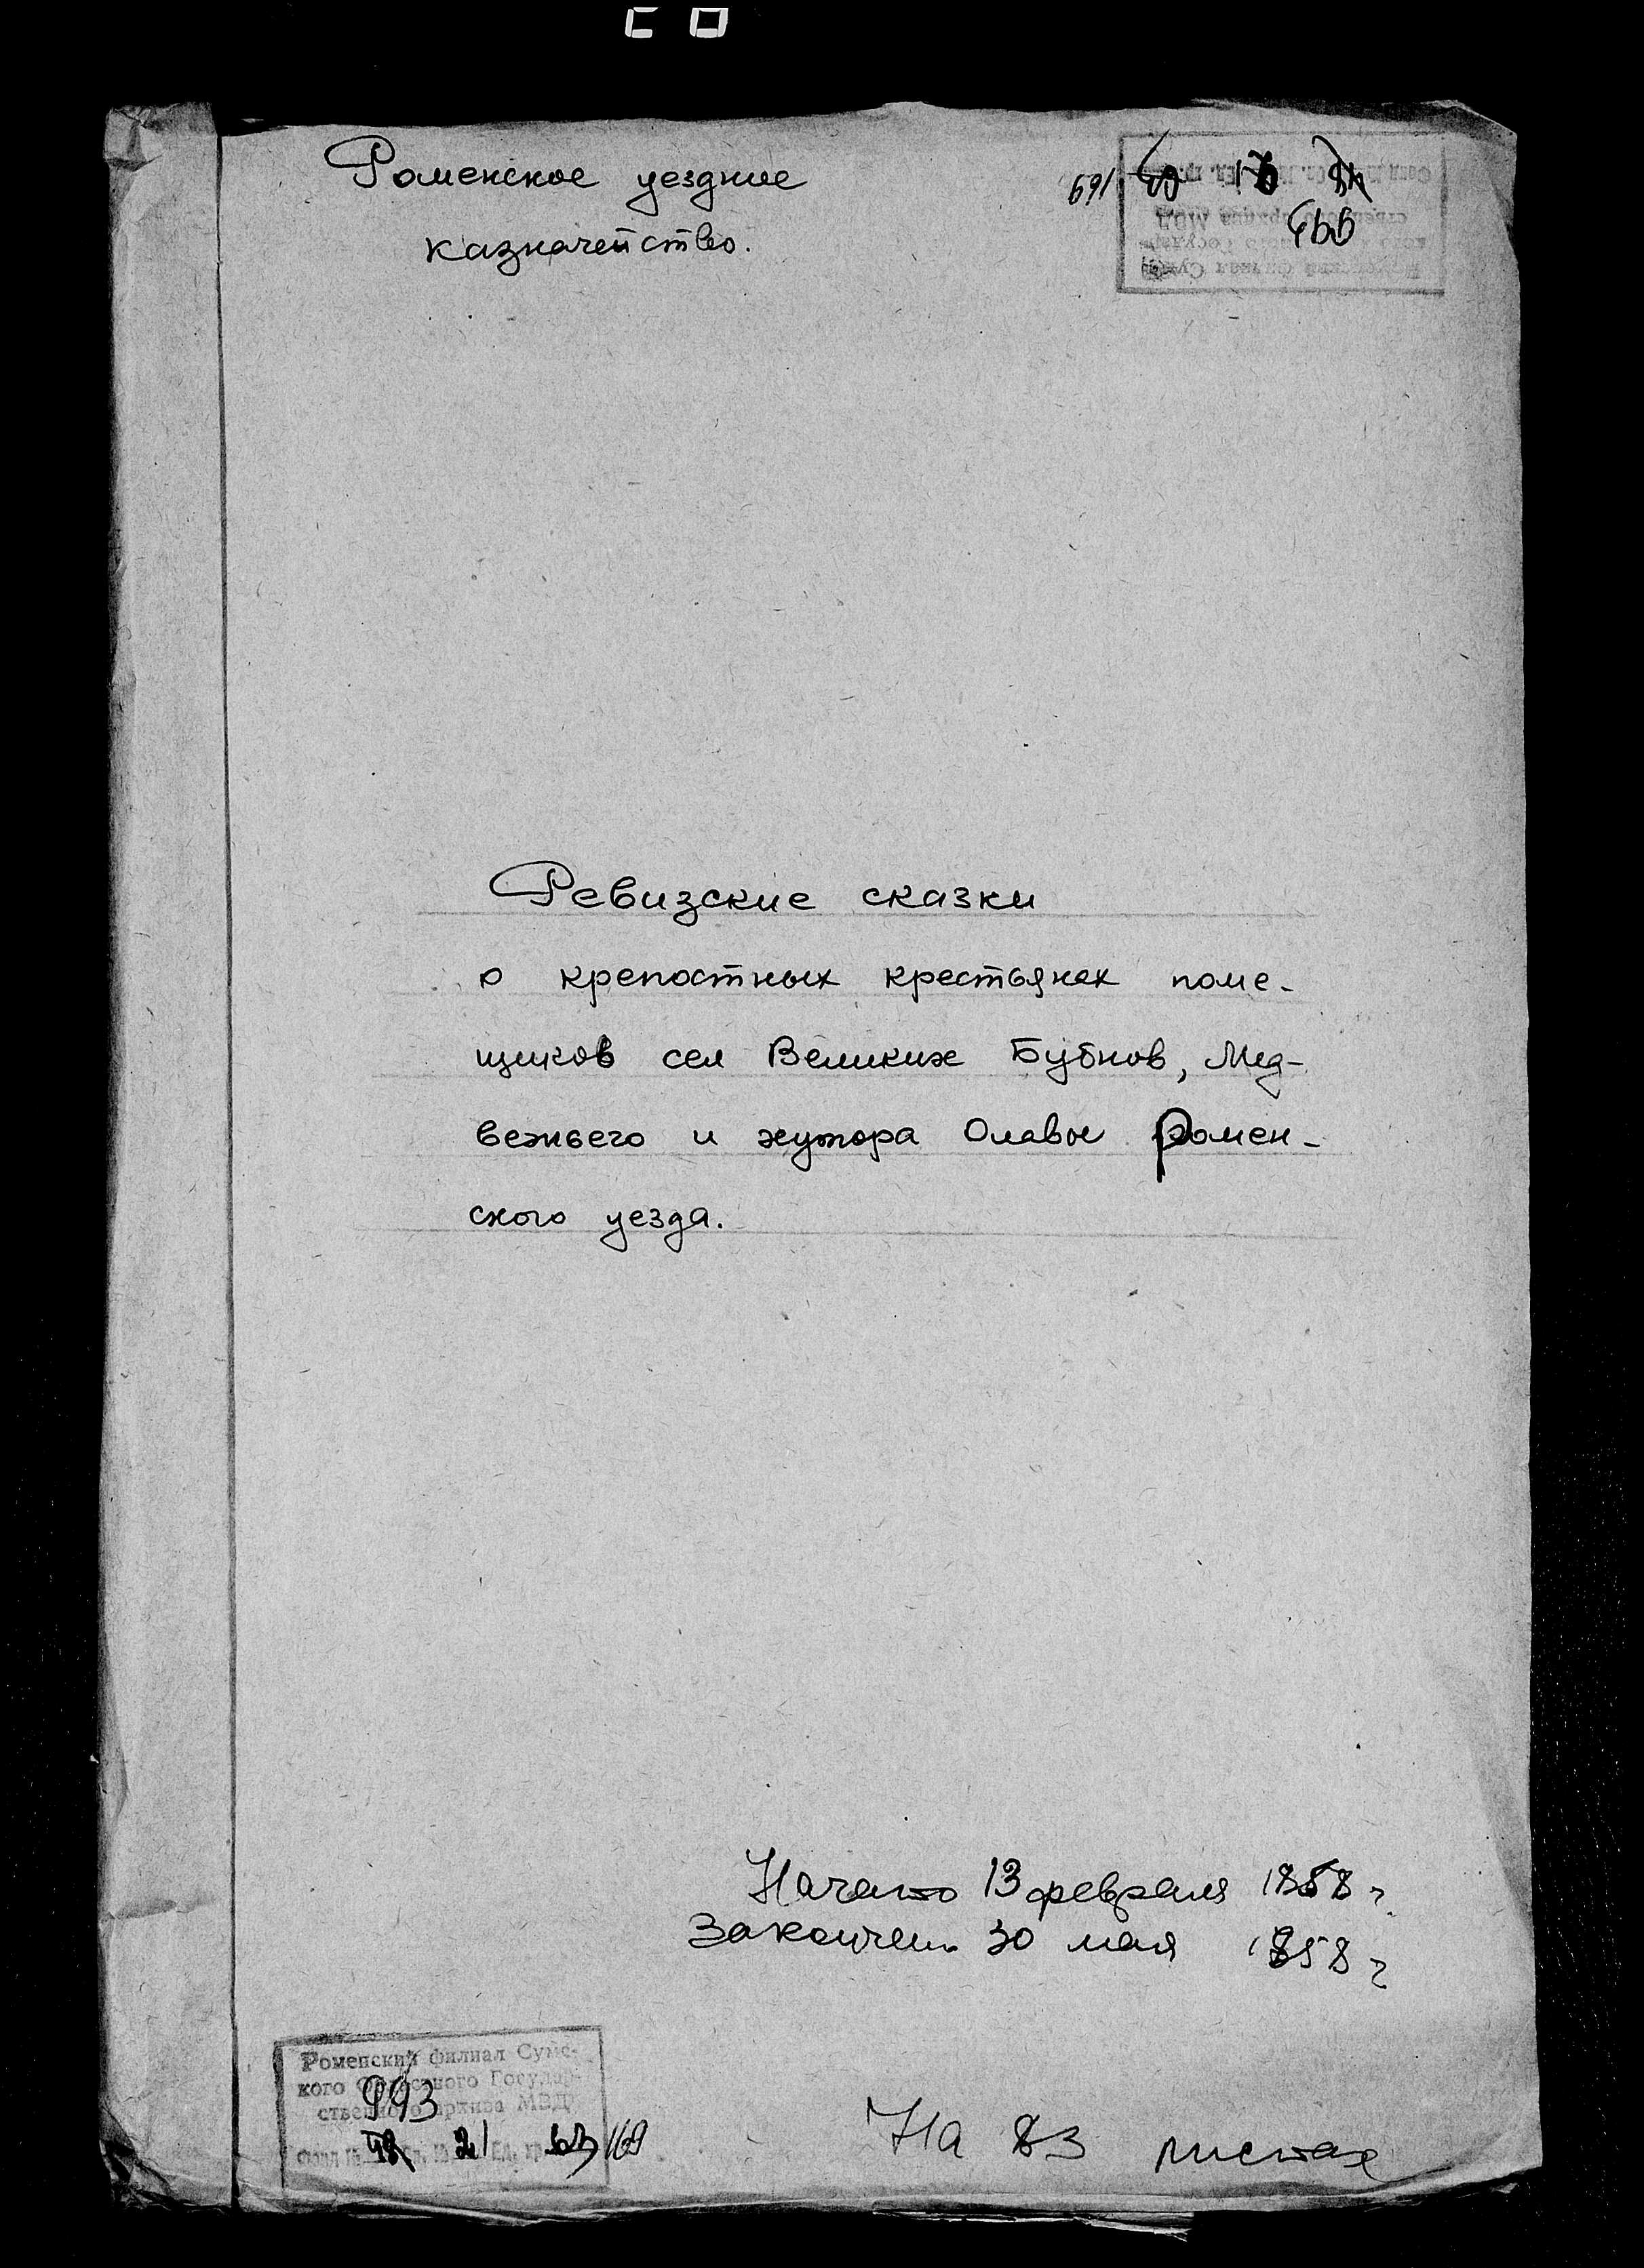 Роменское уездное
казначейство.
169
993
Ревизские сказки
о крепостных крестьянах поме-
щиков сел Великих Бубнов, Мед-
вежьего и хутора Олавы Ромен-
ского уезда.
Начато 13 февраля 1858 г.
Закончен. 30 мая 1858 г
Роменский филиал Сумс-
кого Областного Государ-
ственного архива МВД
993
169
На 83 листах